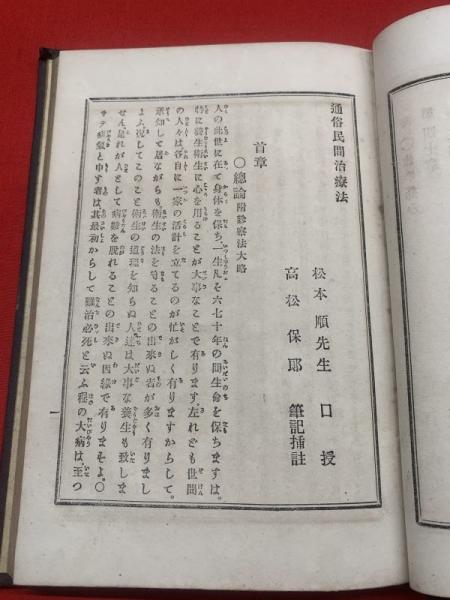 通俗民間治療法
松本順先生 口授
高松保郎 筆記挿註
首章
○總論 附診察法大略
人の此世に在て身体を保ち、一生凡そ六七十年の間生命を保ちますは。
則に養生衛生に心を用ることが大事なことで有ります。左れども世間
の人々は各自に一家の活計を立てるのが忙がしく有りますからして。
承知して居ながらも、衛生の法を守ることの出來ぬ者が多く有りまし
よふ、况してこのこと衛生の道理を知らぬ人達は大事な養生も致しま
せん是れが人として病難を脱れることの出來ぬ因縁で有りますよ。○
サテ病氣と申す者は、其最初からして難治必死と云ふ程の大病は、至つ
一